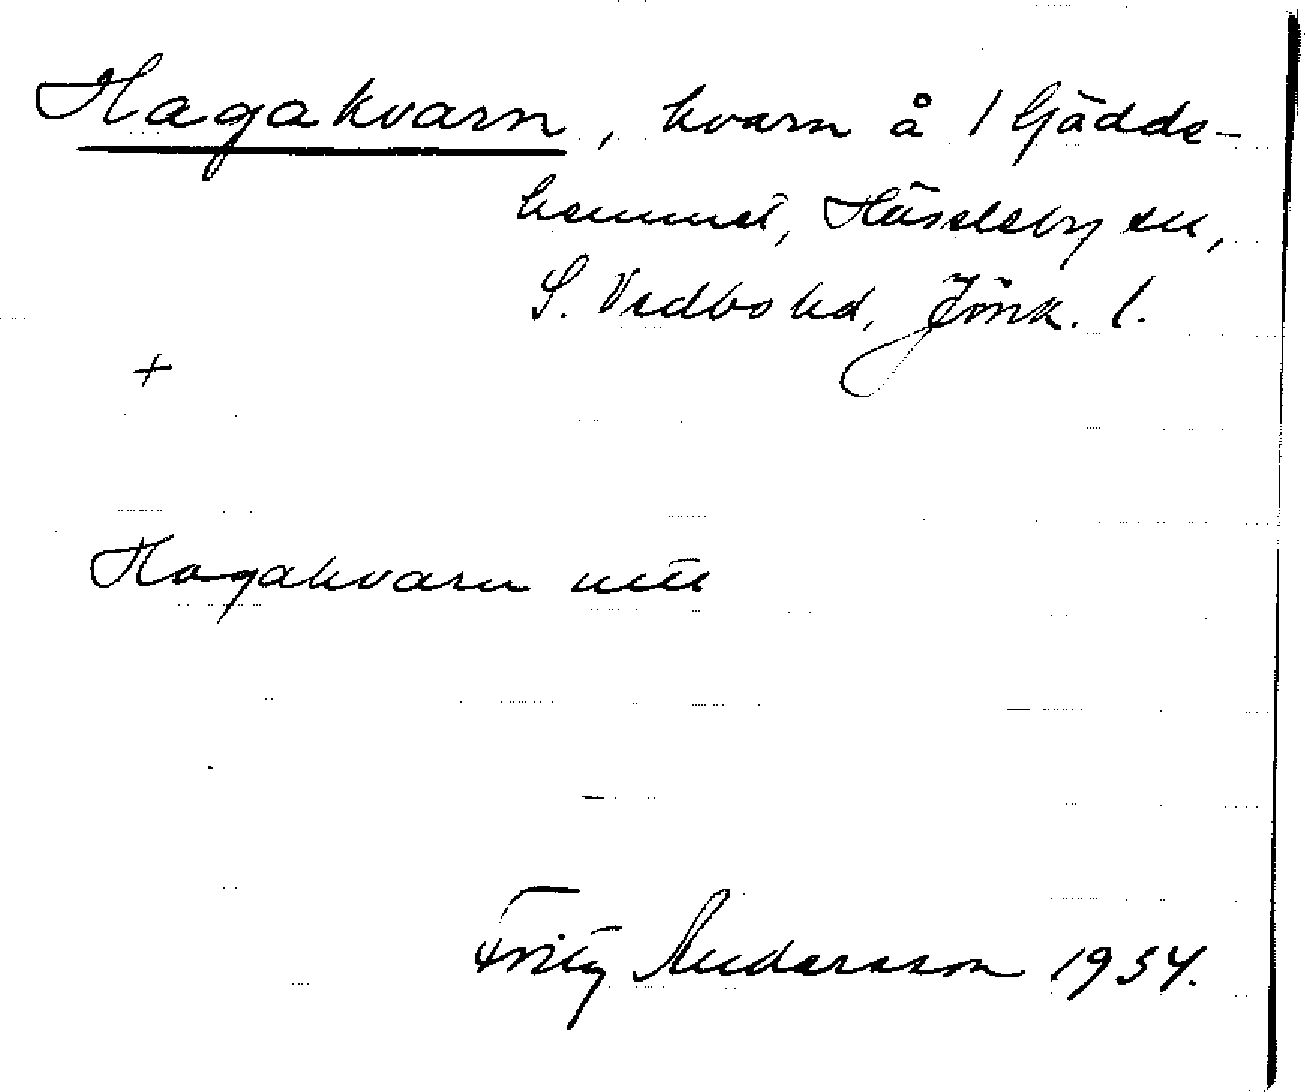 Hagakvarn, kvarn å 1 Gädde-
hemmet, Hässleby sn,
S. Vedbo hd, Jönk. l.
+
Hagakvarn
Fritz Andersson 1934.